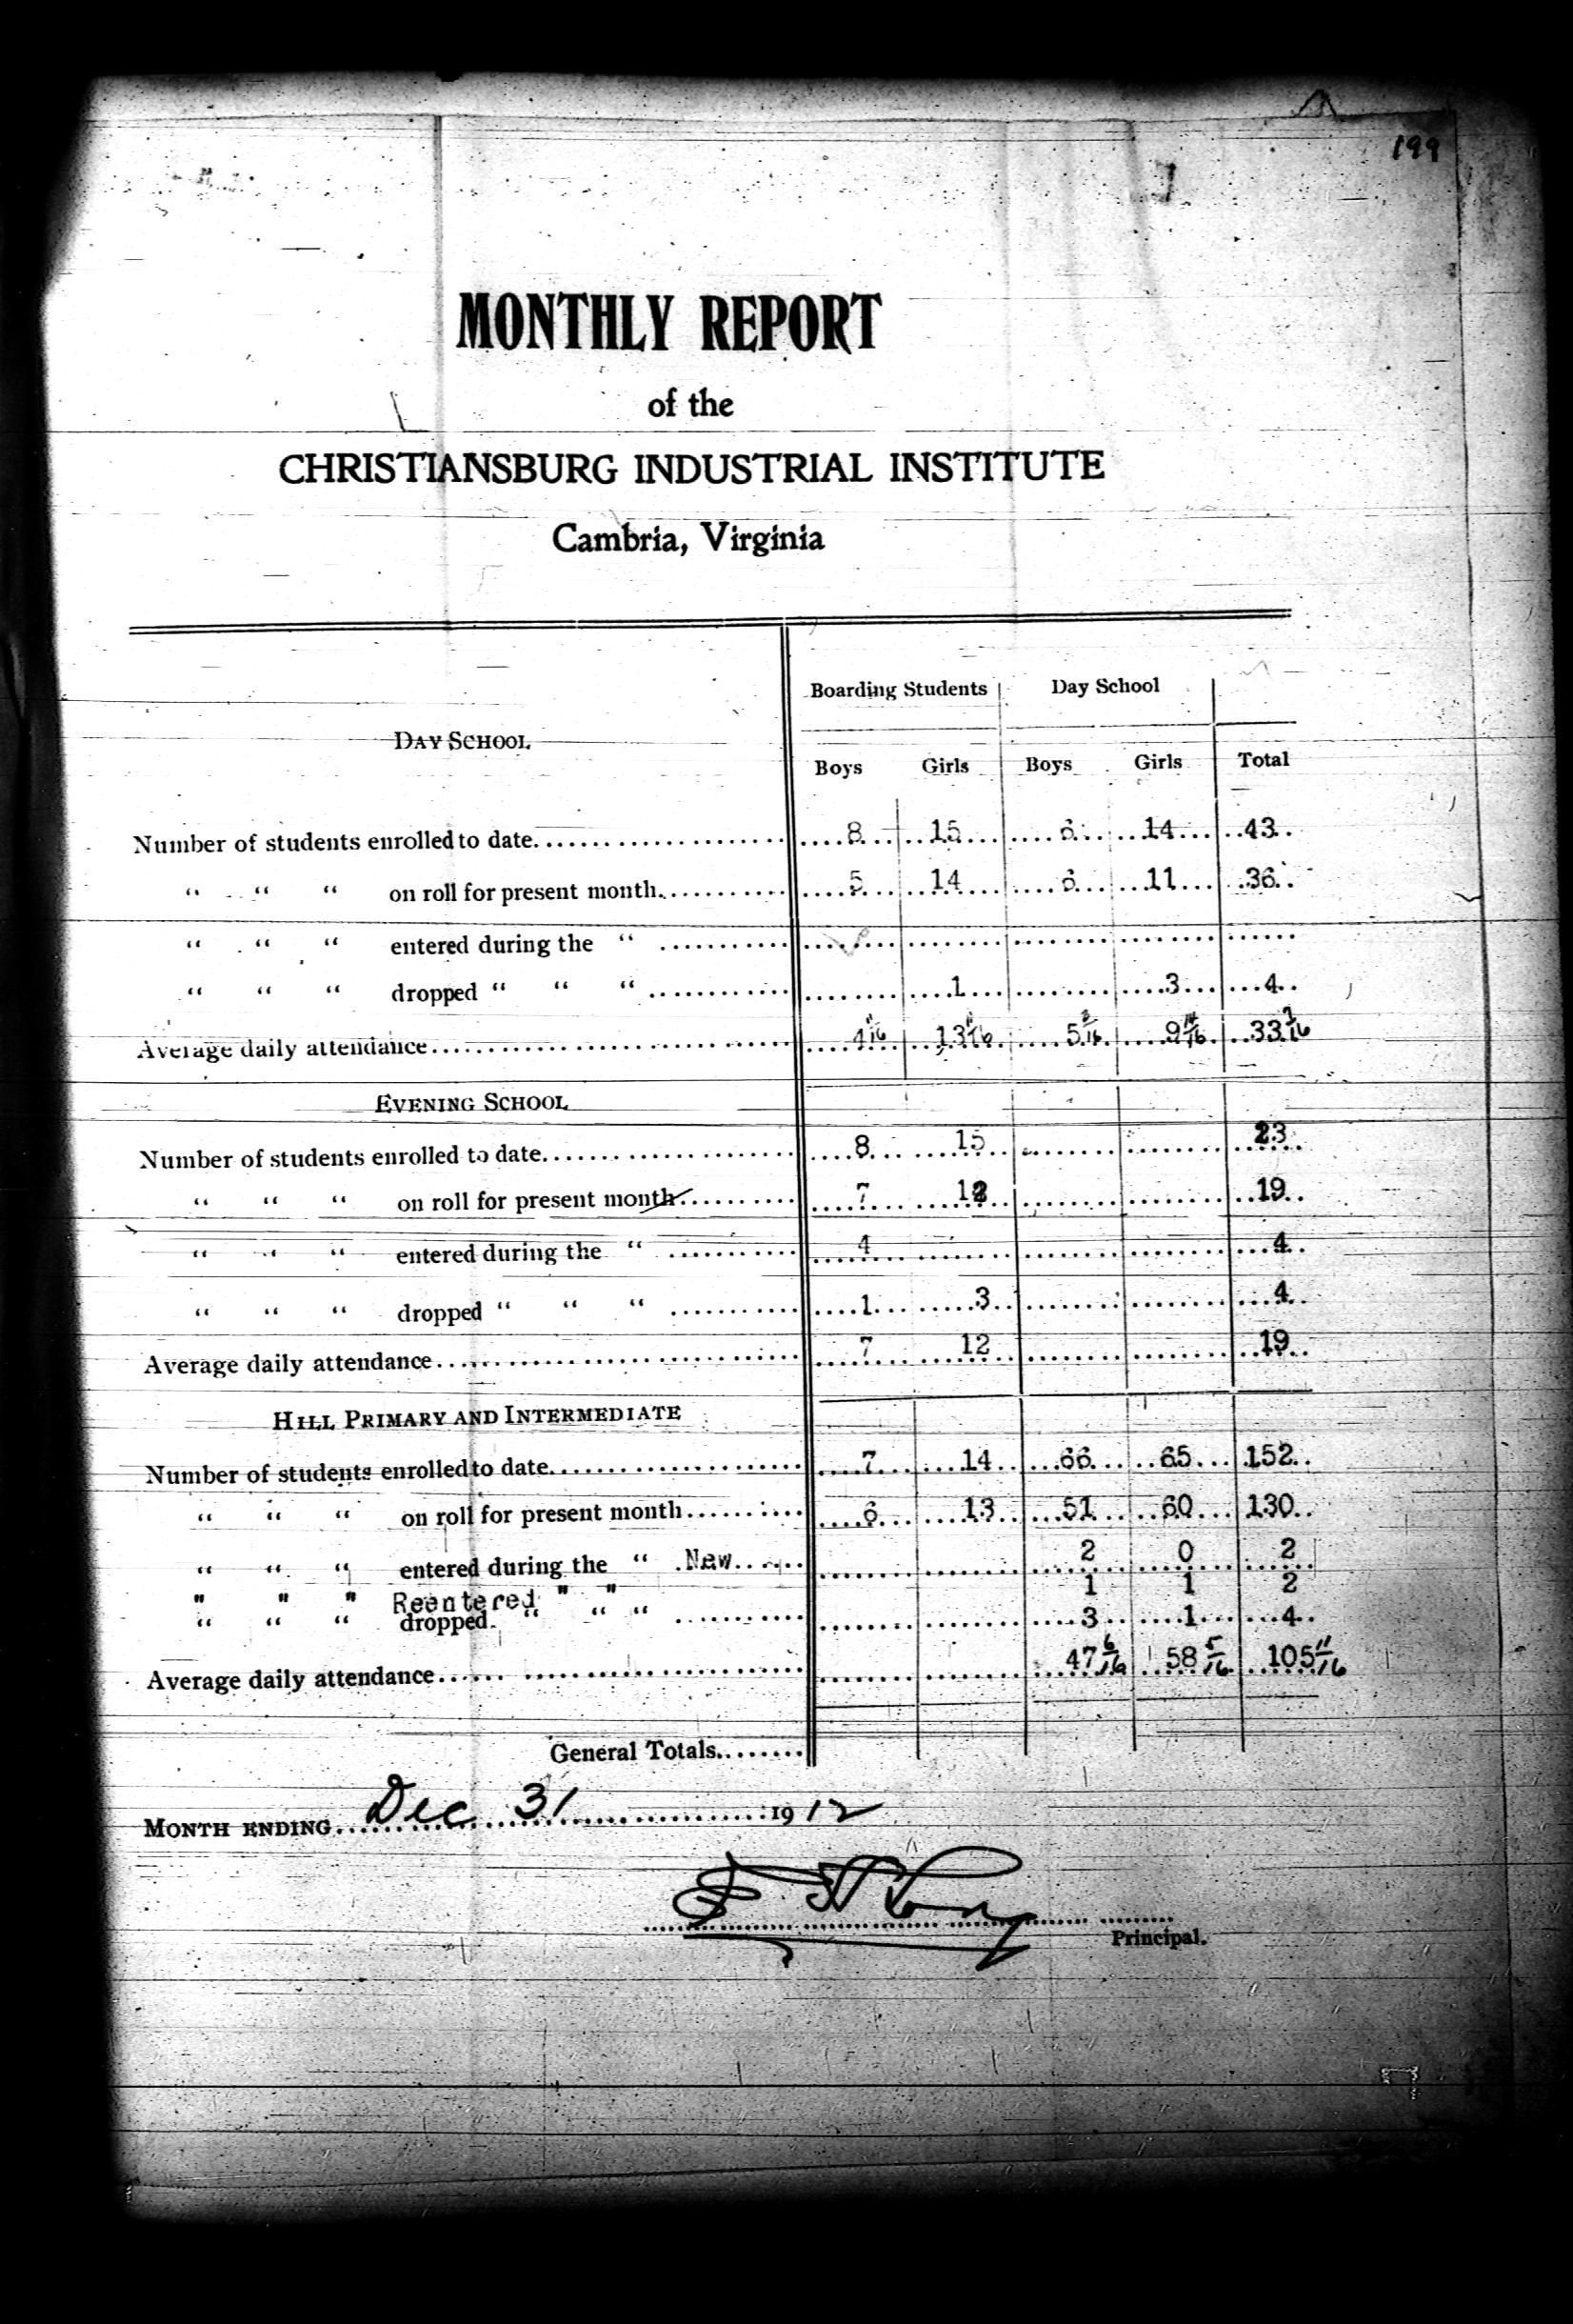 199
MONTHLY REPORT
of the
CHRISTIANSBURG INDUSTRIAL INSTITUTE
Cambria, Virginia
Boarding Students Day School
DAY SCHOOL
Boys Girls Boys Girls Total
Number of students enrolled to date 8 15 6 14 43
“ “ “ on roll for present month 5 14 6 11 36
“ “ “ entered during the “
“ “ “ dropped “ “ “ 1 3 4
Average daily attendance 4 11/16 13 5 2/16 9 33
EVENING SCHOOL
Number of students enrolled to date 8 15 23
“ “ “ on roll for present month 7 12 19
“ “ “ entered during the “ 4 4
“ “ “ dropped “ “ “ 1 3 4
Average daily attendance 7 12 19
HILL PRIMARY AND INTERMEDIATE
Number of students enrolled to date 7 14 66 65 152
“ “ “ on roll for present month 6 13 51 60 130
“ “ “ entered during the “ New 2 0 2
" " " Reentered " " 1 1 2
“ “ “ dropped “ “ “ 3 1 4
Average daily attendance 47 6/16 58 5/16 105 11/16
General Totals
MONTH ENDING Dec 31 1912
Long
Principal.